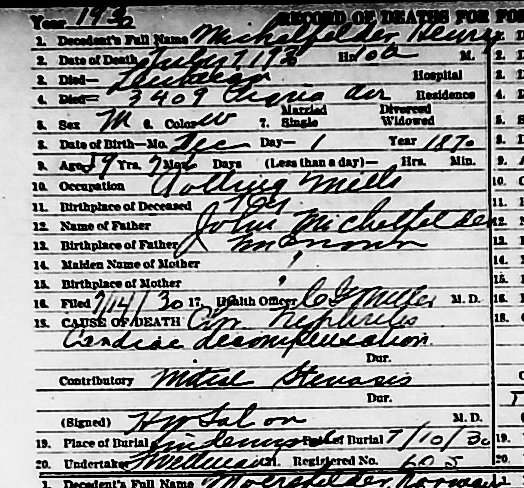 Year 1930 RECORD OF DEATHS FOR
1. Decedent's Full Name Michelfelder Henry
2. Date of Death July 7 193 Hr 10 a M.
3. Died— Hospital
4. Died— 3409 ave Residence
5. Sex M 6. Color W 7. Married Single Divorced Widowed
8. Date of Birth—Mo. Dec Day— 1 Year 1870
9. Age 59 Yrs. 7 Mos. Days (Less than a day)— Hrs. Min.
10. Occupation Rolling Mills
11. Birthplace of Deceased Ky
12. Name of Father John Michelfelder
13. Birthplace of Father unknown
14. Maiden Name of Mother "
15. Birthplace of Mother "
16. Filed 7/14/30 17. Health Officer C G Miller M. D.
18. CAUSE OF DEATH Chr. Nephritis
Cardiac decompensation
Dur.
Contributory Mitral Stenosis
Dur.
(Signed) M. D.
19. Place of Burial Date of Burial 7/10/30
20. Undertaker 21. Registered No. 605
1. Decedent's Full Name